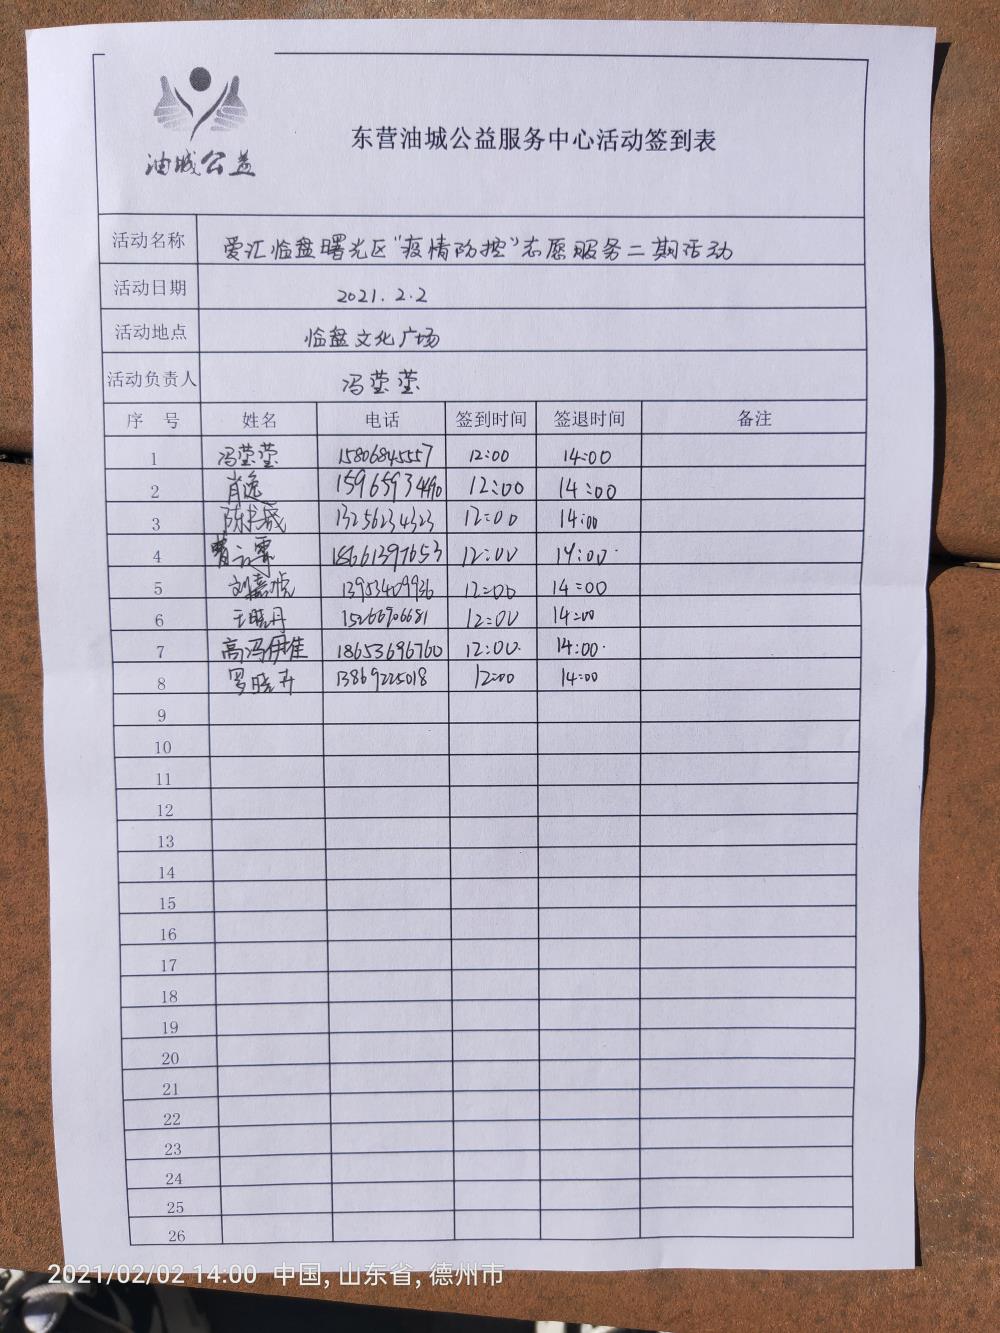 油城公益
东营油城公益服务中心活动签到表
活动名称 爱汇临盘曙光区“疫情防控”志愿服务二期活动
活动日期 2021.2.2
活动地点 临盘文化广场
活动负责人 冯莹莹
序 号 姓名 电话 签到时间 签退时间 备注
1 冯莹莹 15806845557 12:00 14:00
2 肖逸 15965934490 12:00 14:00
3 13256234323 12:00 14:00
4 18661397653 12:00 14:00
5 13953409936 12:00 14:00
6 王晓丹 15266906681 12:00 14:00
7 高冯伊佳 18653696760 12:00 14:00
8 罗晓卉 13869225018 12:00 14:00
9
10
11
12
13
14
15
16
17
18
19
20
21
22
23
24
25
26
2021/02/02 14:00 中国, 山东省, 德州市